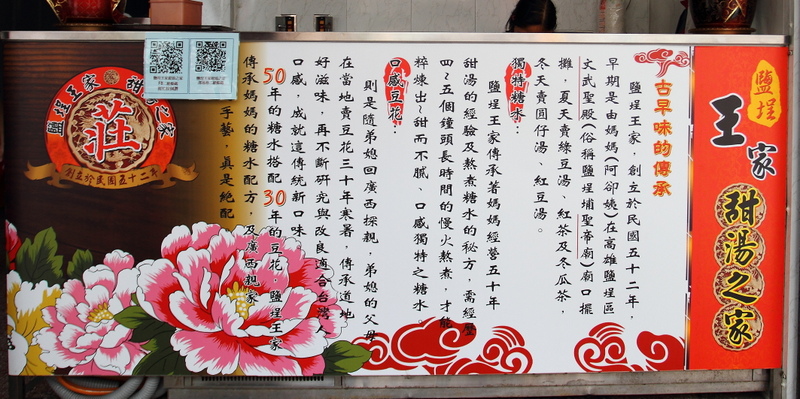 鹽埕
王家
甜湯之家
古早味的傳承
鹽埕王家，創立於民國五十二年，
早期是由媽媽(阿卻嬈)在高雄鹽埕區
文武聖殿(俗稱鹽埕埔聖帝廟)廟口擺
攤，夏天賣綠豆湯、紅茶及冬瓜茶，
冬天賣圓仔湯、紅豆湯。
獨特糖水：
鹽埕王家傳承著媽媽經營五十年
甜湯的經驗及熬煮糖水的秘方，需經歷
四～五個鐘頭長時間的慢火熬煮，才能
粹煉出~甜而不膩、口感獨特之糖水。
口感豆花：
則是隨弟媳回廣西探親，弟媳的父母
在當地賣豆花三十年寒暑，傳承道地
好滋味，再不斷研究與改良適合台灣人
口感，成就這傳統新口味。
50年的糖水搭配30年的豆花，鹽埕王家
傳承媽媽的糖水配方，及廣西親家
手藝，真是絕配
鹽埕王家
莊
創立於民國五十二年